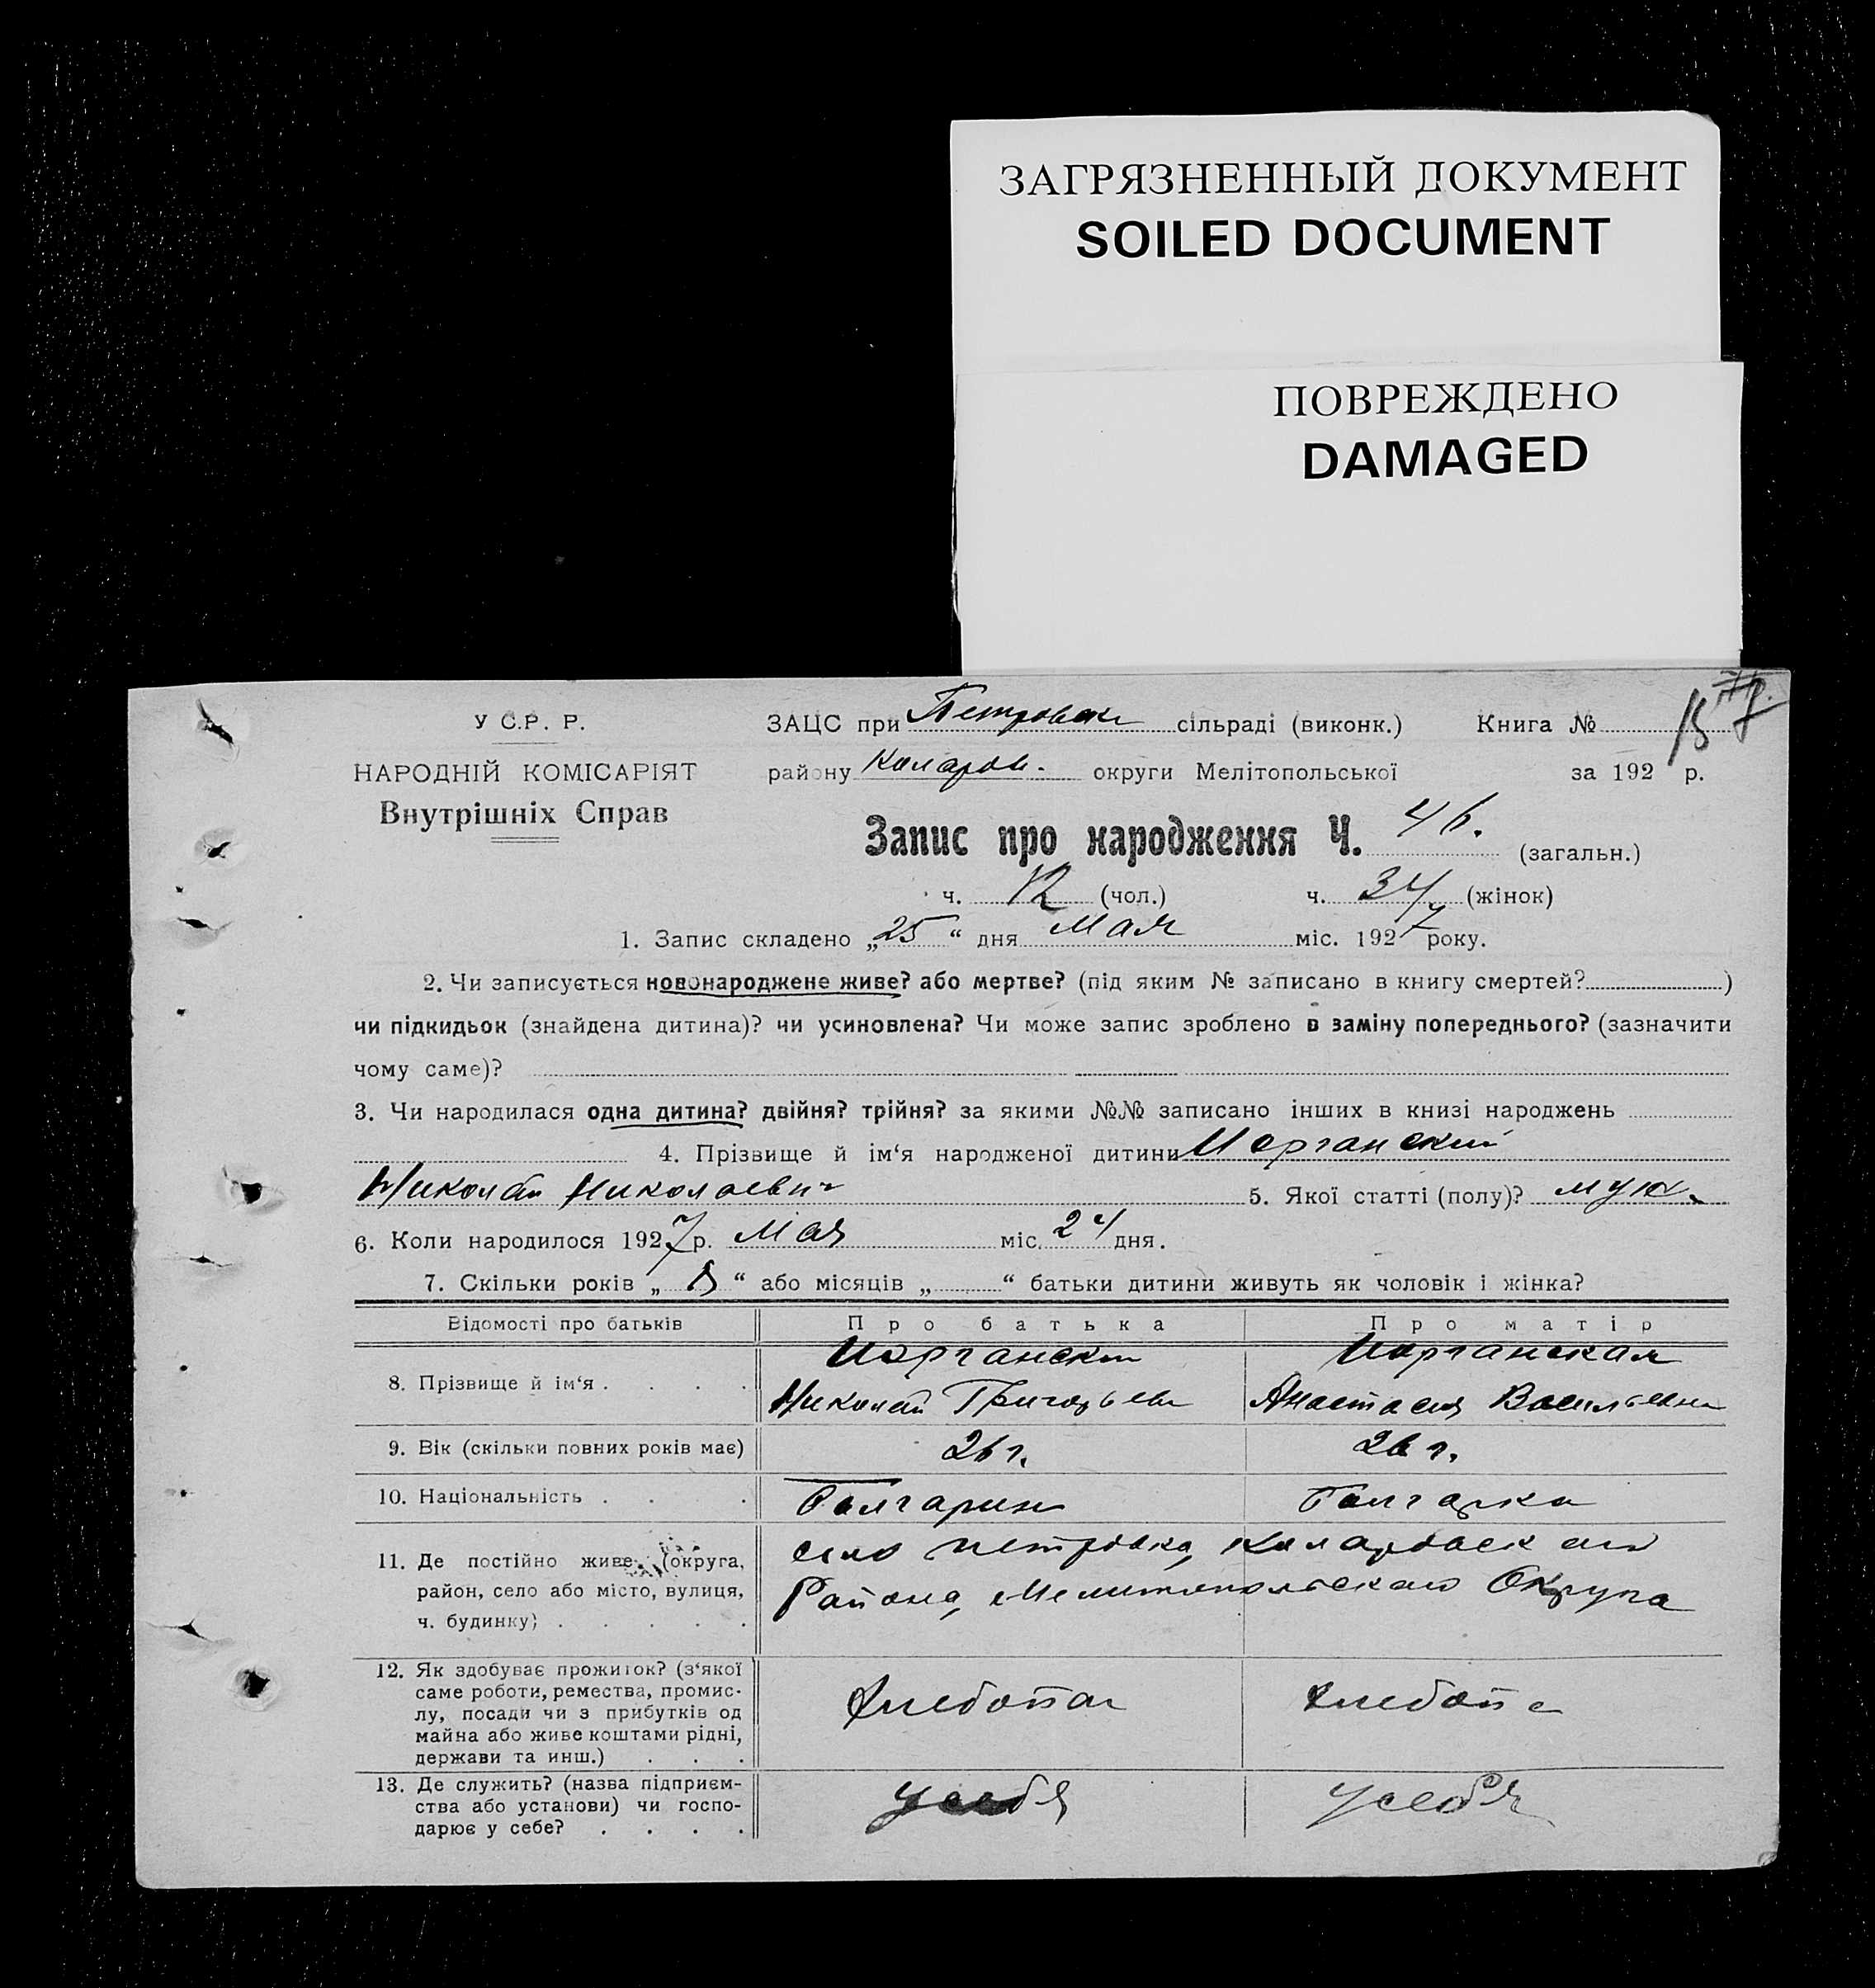 ЗАГРЯЗНЕННЫЙ ДОКУМЕНТ
SOILED DOCUMENT
ПОВРЕЖДЕНО
DAMAGED
У С.Р. Р.
НАРОДНІЙ КОМІСАРІЯТ
Внутрішніх Справ
ЗАЦС при Петровск сільраді (виконк.) Книга №
району Коларов. округи Мелітопольської за 192 р.
Запис про народження Ч. 46. (загальн.)
ч. 12 (чол.) ч. 34 (жінок)
1. Запис складено „25“ дня Мая міс. 1927 року.
2. Чи записується новонароджене живе? або мертве? (під яким № записано в книгу смертей? )
чи підкидьок (знайдена дитина)? чи усиновлена? Чи може запис зроблено в заміну попереднього? (зазначити
чому саме)?
3. Чи народилася одна дитина? двійня? трійня? за якими №№ записано інших в книзі народжень
4. Прізвище й ім‘я народженої дитини Иорганский
Николай Николаевич 5. Якої статті (полу)? муж.
6. Коли народилося 1927 р. Мая міс. 24 дня.
7. Скільки років „ “ або місяців „ “ батьки дитини живуть як чоловік і жінка?
Відомості про батьків Про батька Про матір
8. Прізвище й ім‘я . . . . Иорганский Иорганская
Николай Григорьев Анастасия Васильевна
9. Вік (скільки повних років має) 26 г. 26 г.
10. Національність . . . Болгарин Болгарка
11. Де постійно живе (округа, село Петровка, Коларовского
район, село або місто, вулиця, Района, Мелитопольскаго Округа
ч. будинку) . . . . .
12. Як здобуває прожиток? (з‘якої
саме роботи, ремества, промис-
лу, посади чи з прибутків од Хлебопаш Хлебопа
майна або живе коштами рідні,
держави та инш.) . . .
13. Де служить? (назва підприєм-
ства або установи) чи госпо- у себя у себя
дарює у себе? . . . .